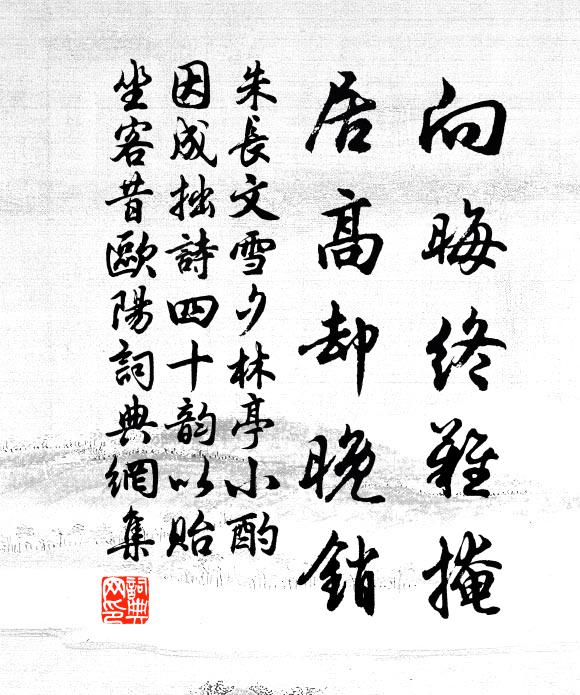 向晦終難掩
居高却晚銷
朱長文雪夕林亭小酌
因成拙詩四十韵以貽
坐客昔歐陽詞典網集
詞典网印